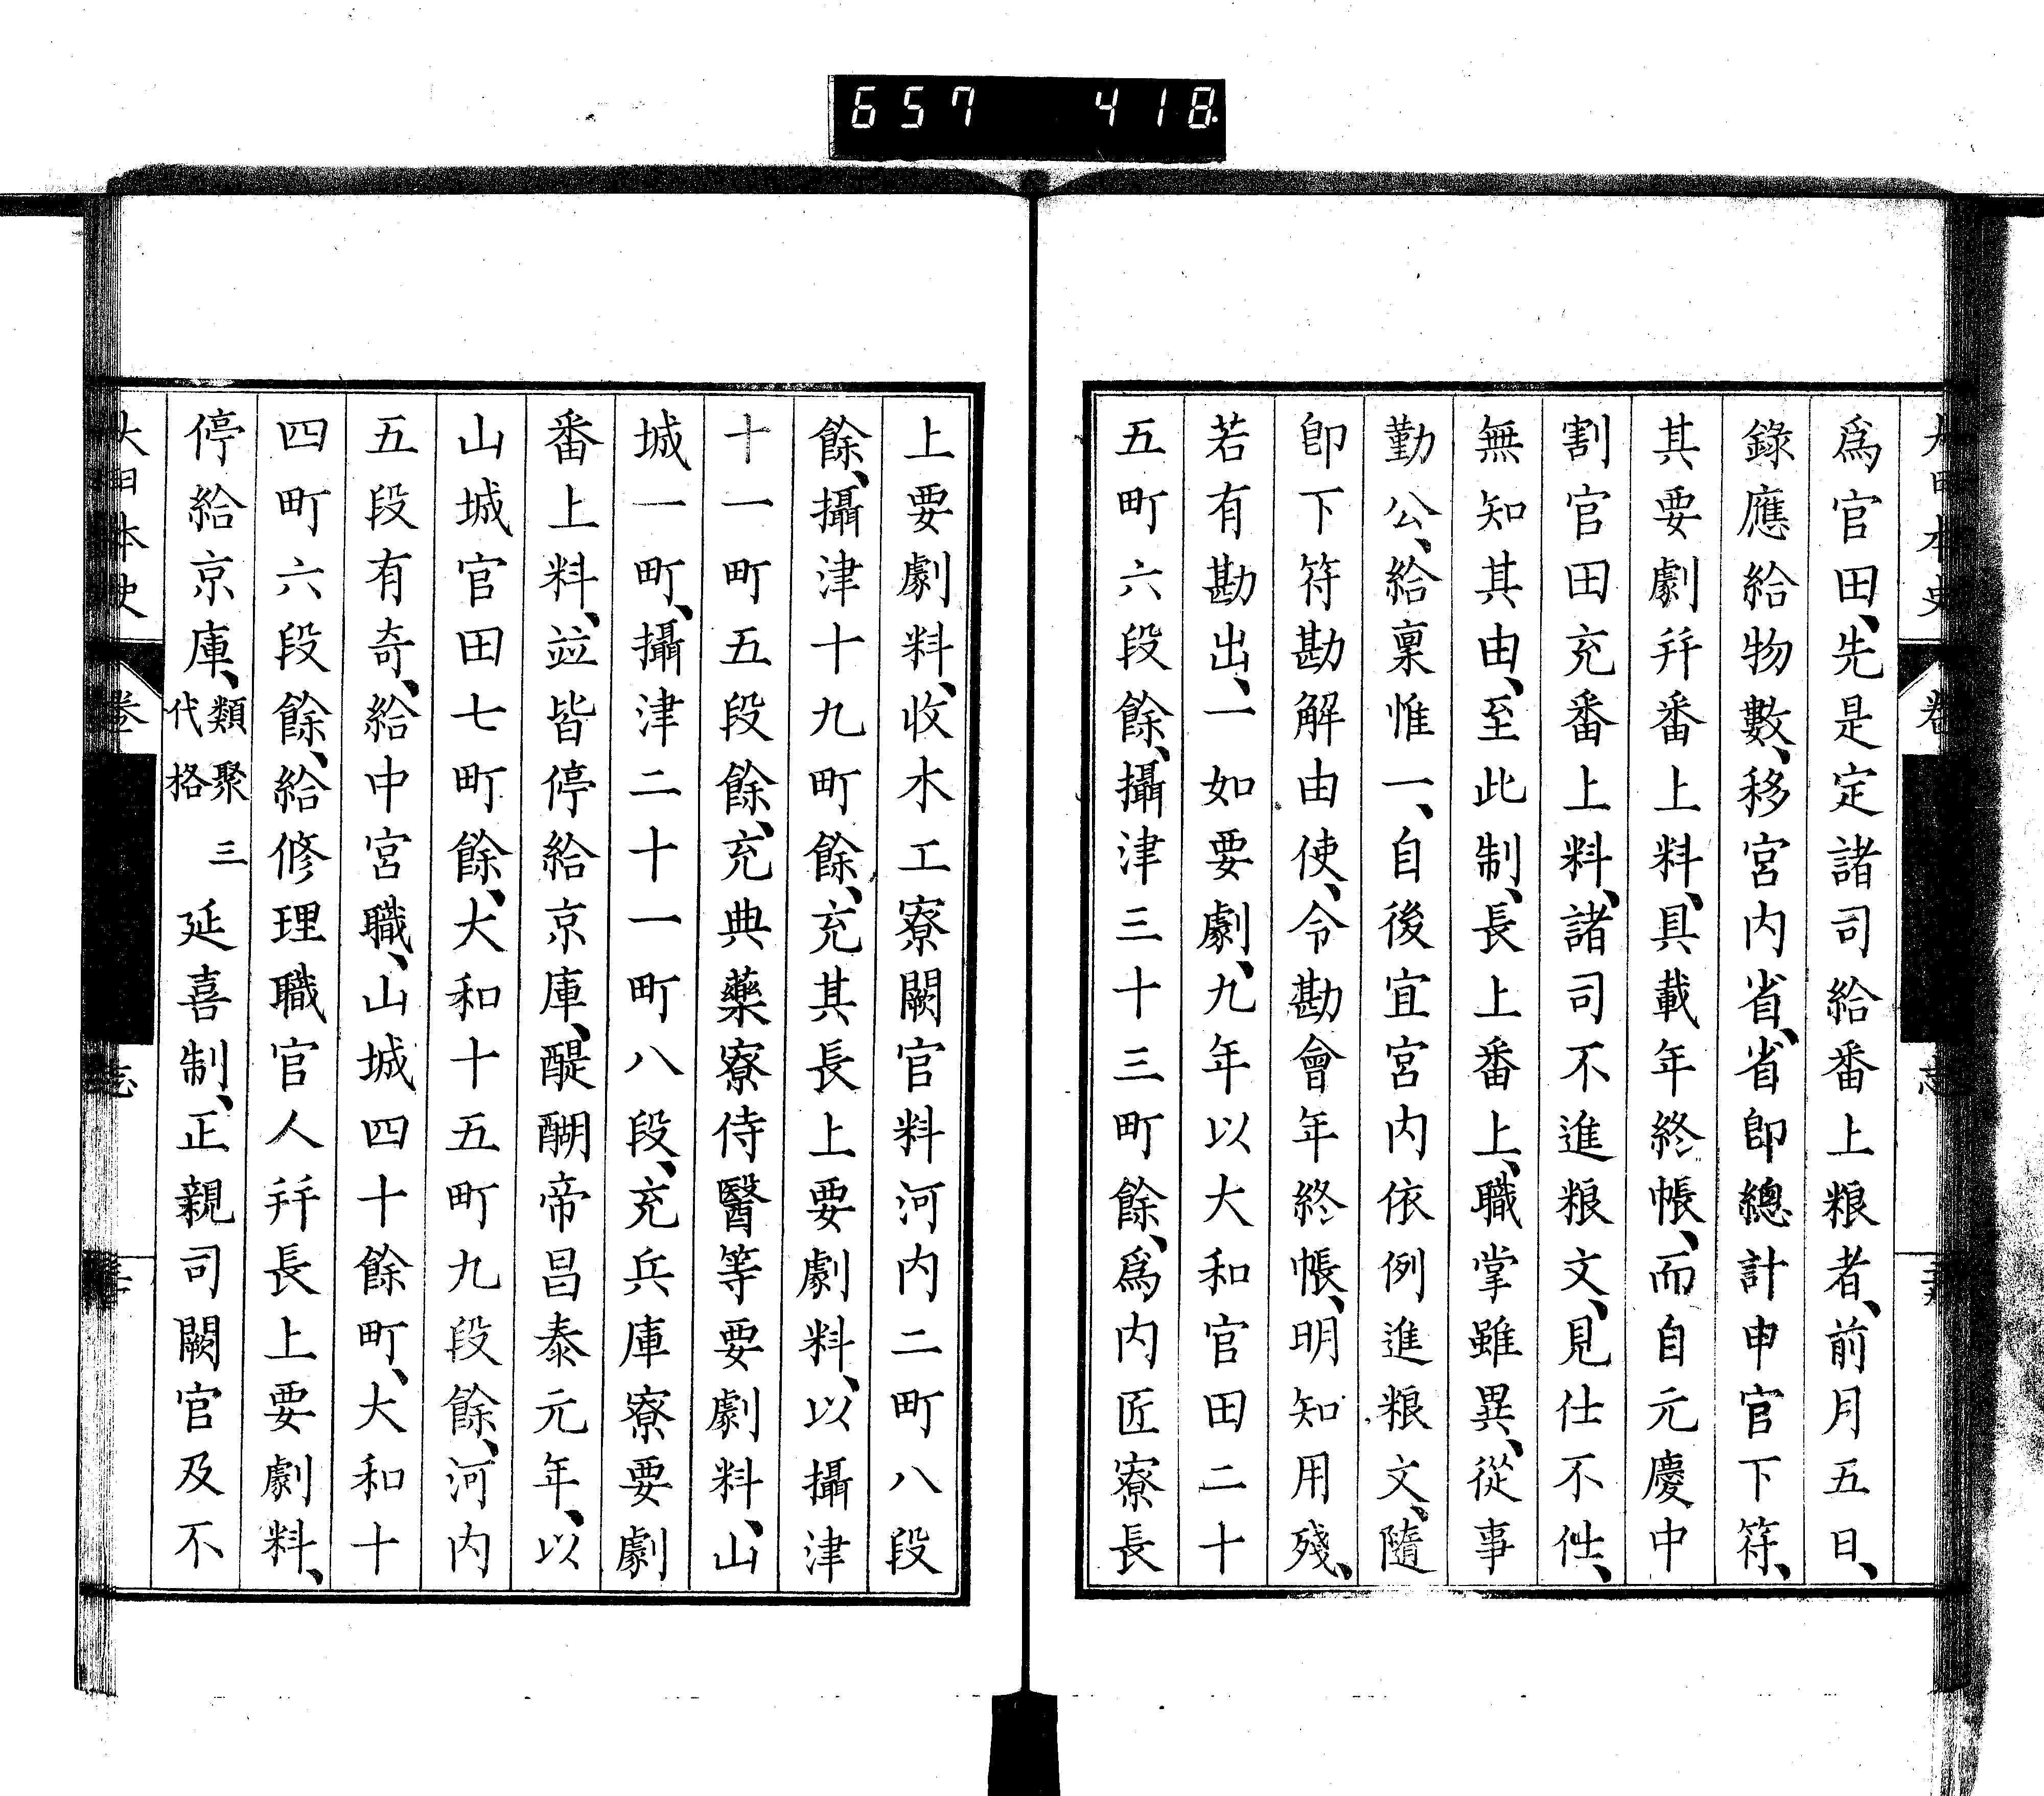 657 418
爲官田、先是定諸司給番上粮者、前月五日、
錄應給物數、移宮内省、省卽總計申官下符、
其要劇幷番上料、具載年終帳、而自元慶中
割官田充番上料、諸司不進粮文、見仕不仕、
無知其由、至此制、長上番上、職掌雖異、從事
勤公、給稟惟一、自後宜宮内依例進粮文、隨
卽下符勘解由使、令勘會年終帳、明知用殘、
若有勘出、一如要劇、九年以大和官田二十
五町六段餘、攝津三十三町餘、爲内匠寮長
上要劇料、收木工寮闕官料河内二町八段
餘、攝津十九町餘、充其長上要劇料、以攝津
十一町五段餘、充典藥寮侍醫等要劇料、山
城一町、攝津二十一町八段、充兵庫寮要劇
番上料、並皆停給京庫、醍醐帝昌泰元年、以
山城官田七町餘、大和十五町九段餘、河内
五段有奇、給中宮職、山城四十餘町、大和十
四町六段餘、給修理職官人幷長上要劇料、
停給京庫、類聚三代格 延喜制、正親司闕官及不
大日本史 卷 志